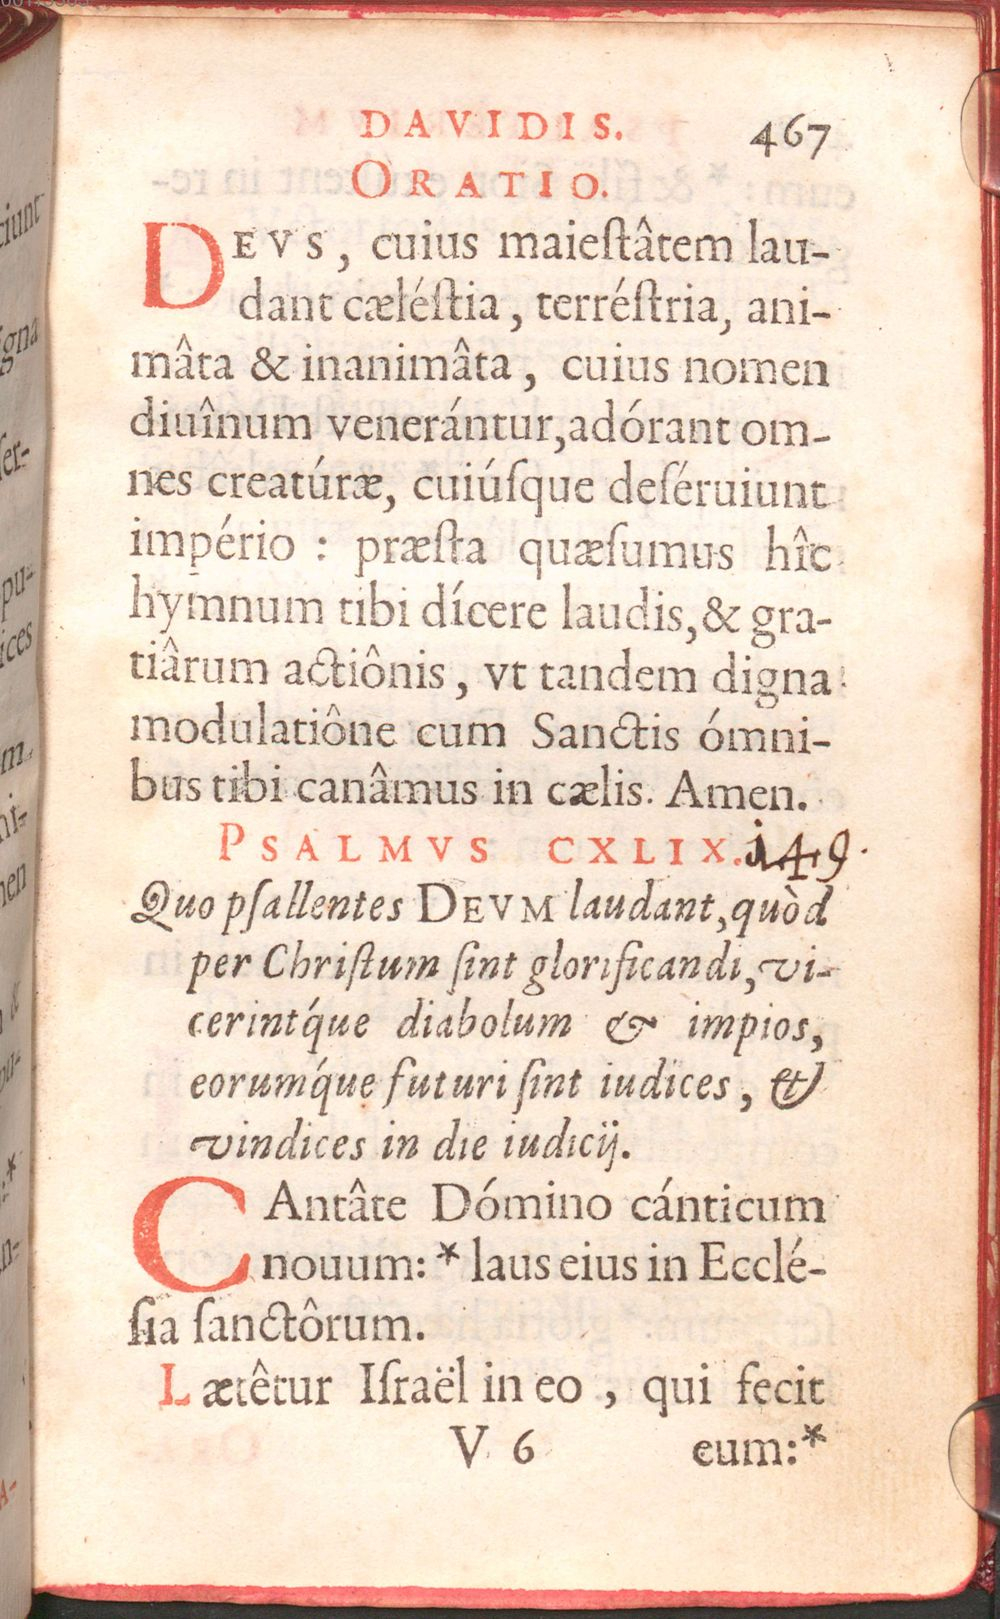 DAVIDIS. 467
ORATIO.
DEVS, cuius maieſtâtem lau-
dant cæléſtia, terréſtria, ani-
mâta & inanimâta, cuius nomen
diuînum venerántur,adórant om-
nes creatúræ, cuiúſque deſéruiunt
império : præſta quæſumus hîc
hymnum tibi dícere laudis,& gra-
tiârum actiônis, vt tandem digna
modulatiône cum Sanctis ómni-
bus tibi canâmus in cælis. Amen.
PSALMVS CXLIX. 149.
Quo pſallentes DEVM laudant,quòd
per Chriſtum ſint glorificandi, vi-
cerintq́ue diabolum & impios,
eorumq́ue futuri ſint iudices, &
vindices in die iudicij.
CAntâte Dómino cánticum
nouum: * laus eius in Ecclé-
ſia ſanctôrum.
Lætêtur Iſraël in eo , qui fecit
V 6 eum:*